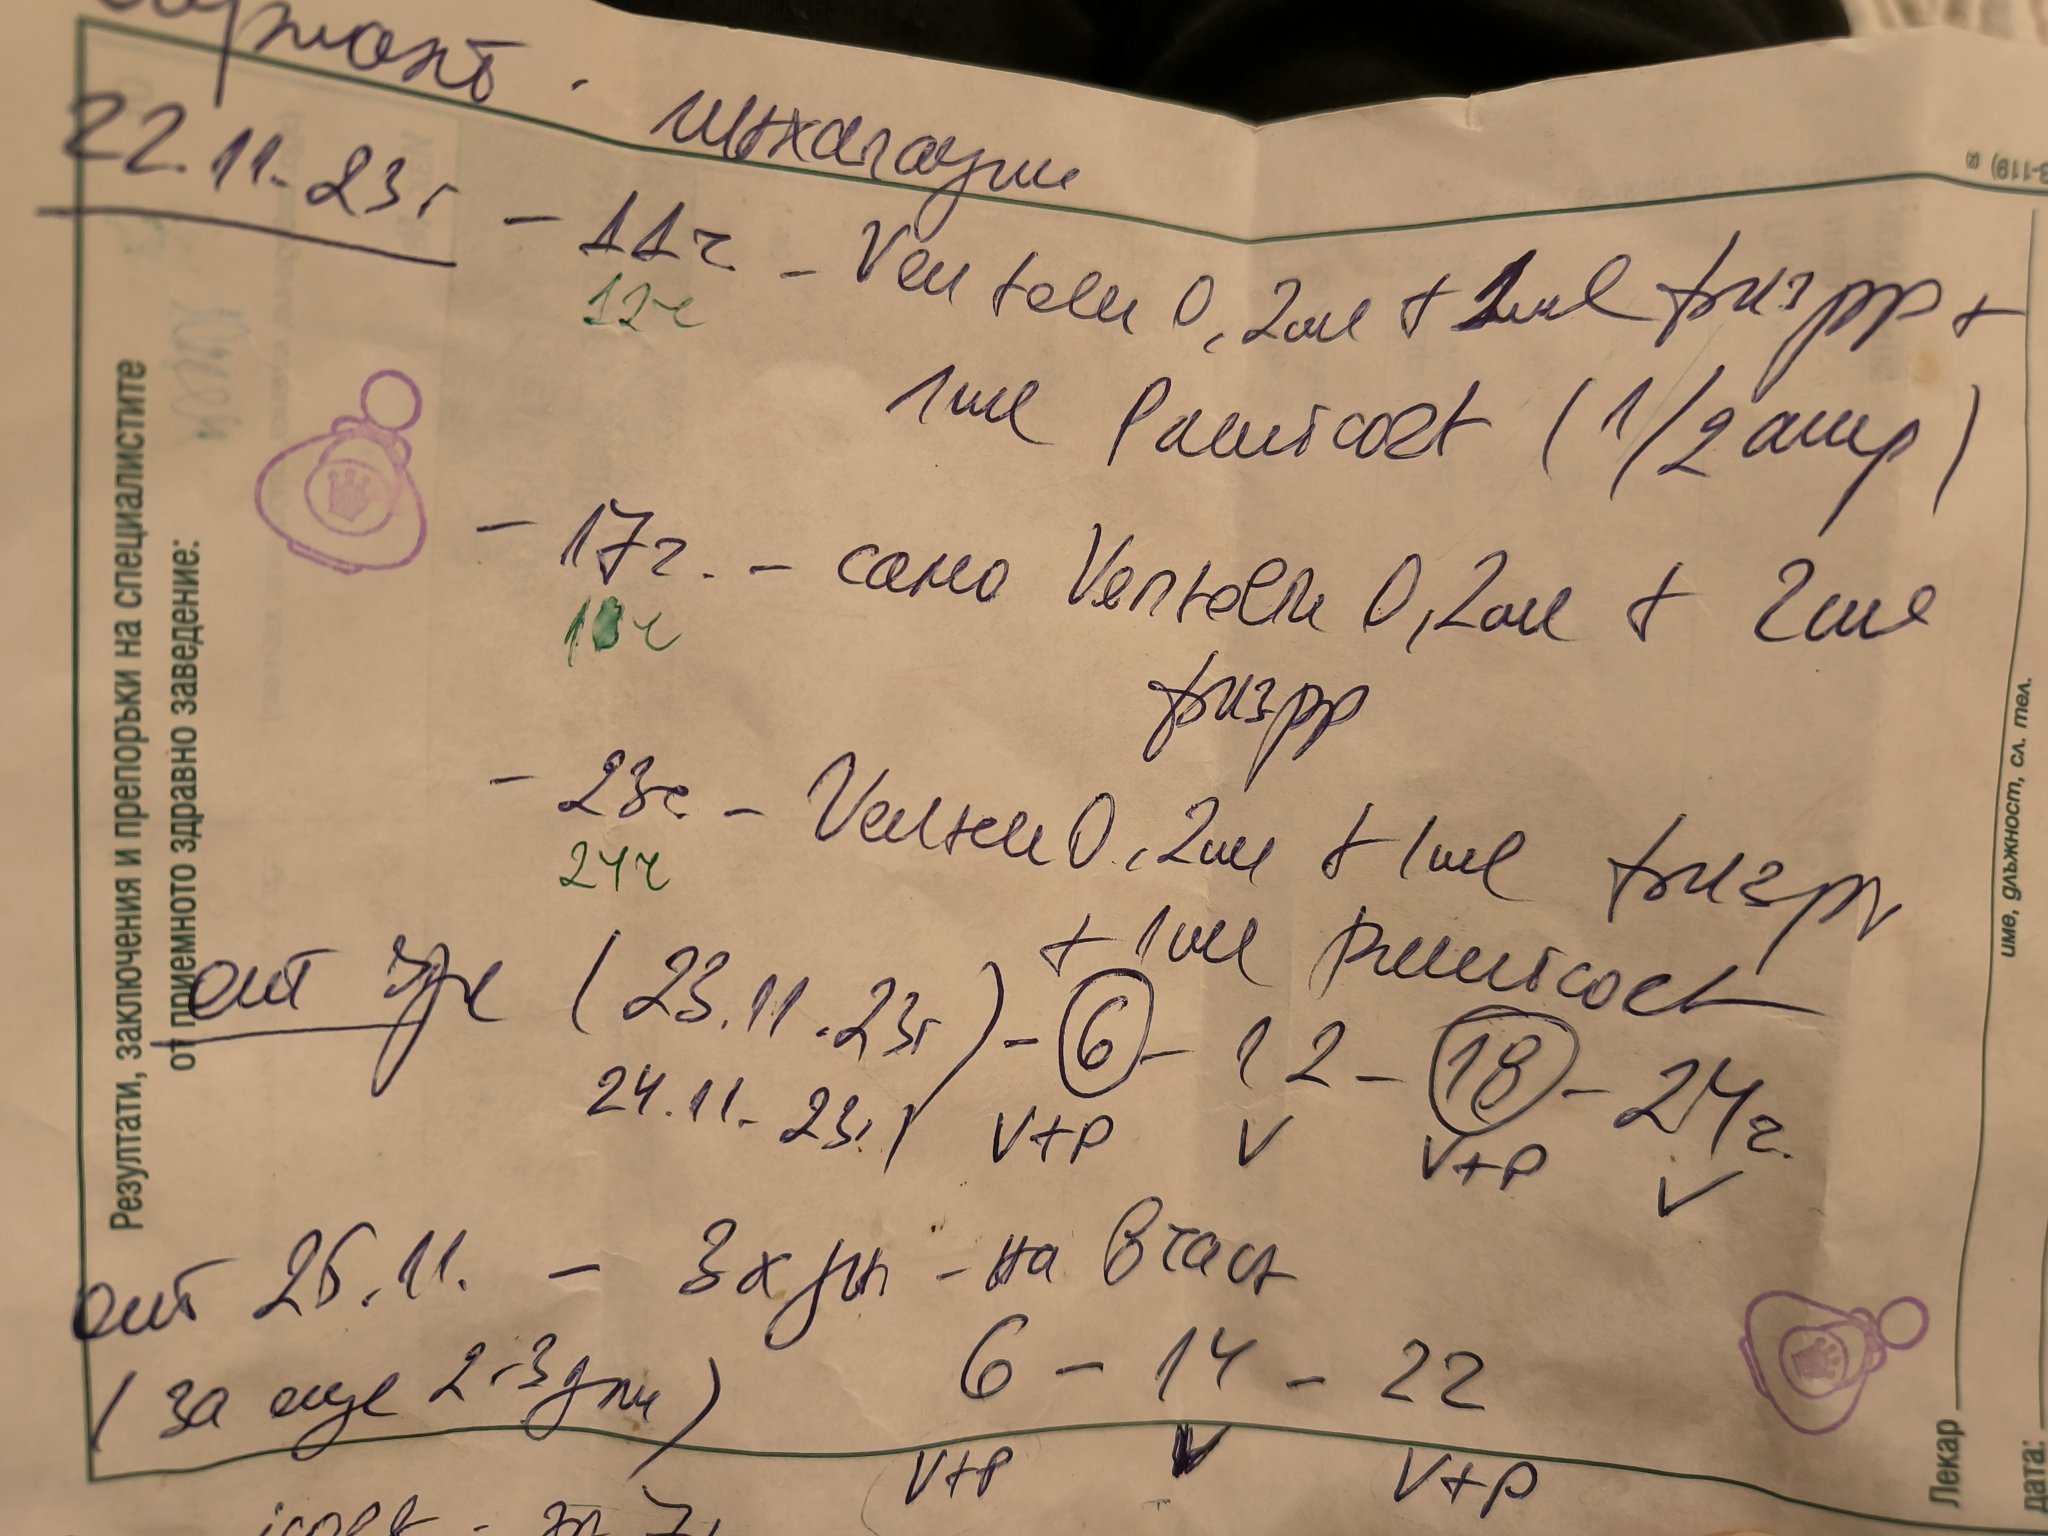 инхалации
22.11.23г
- 11ч - Ventolin 0,2мл + 1ml физрр +
12ч
1ml Pulmicort (1/2 амр)
- 17ч. - само Ventolin 0,2мл + 2ml
18ч
физрр
- 23ч - Ventolin 0,2ml + 1ml физрр
24ч
+ 1ml Pulmicort
от (23.11.23г) - 6 - 12 - 18 - 24ч.
24.11.23г
V+P V V+P V
от 25.11. - 3 х дн - на 8 часа
(за още 2-3 дни)
6 - 14 - 22
V+P V V+P
Резултати, заключения и препоръки на специалистите
от приемното здравно заведение:
3-119)
име, длъжност, сл. тел.
Лекар
дата: